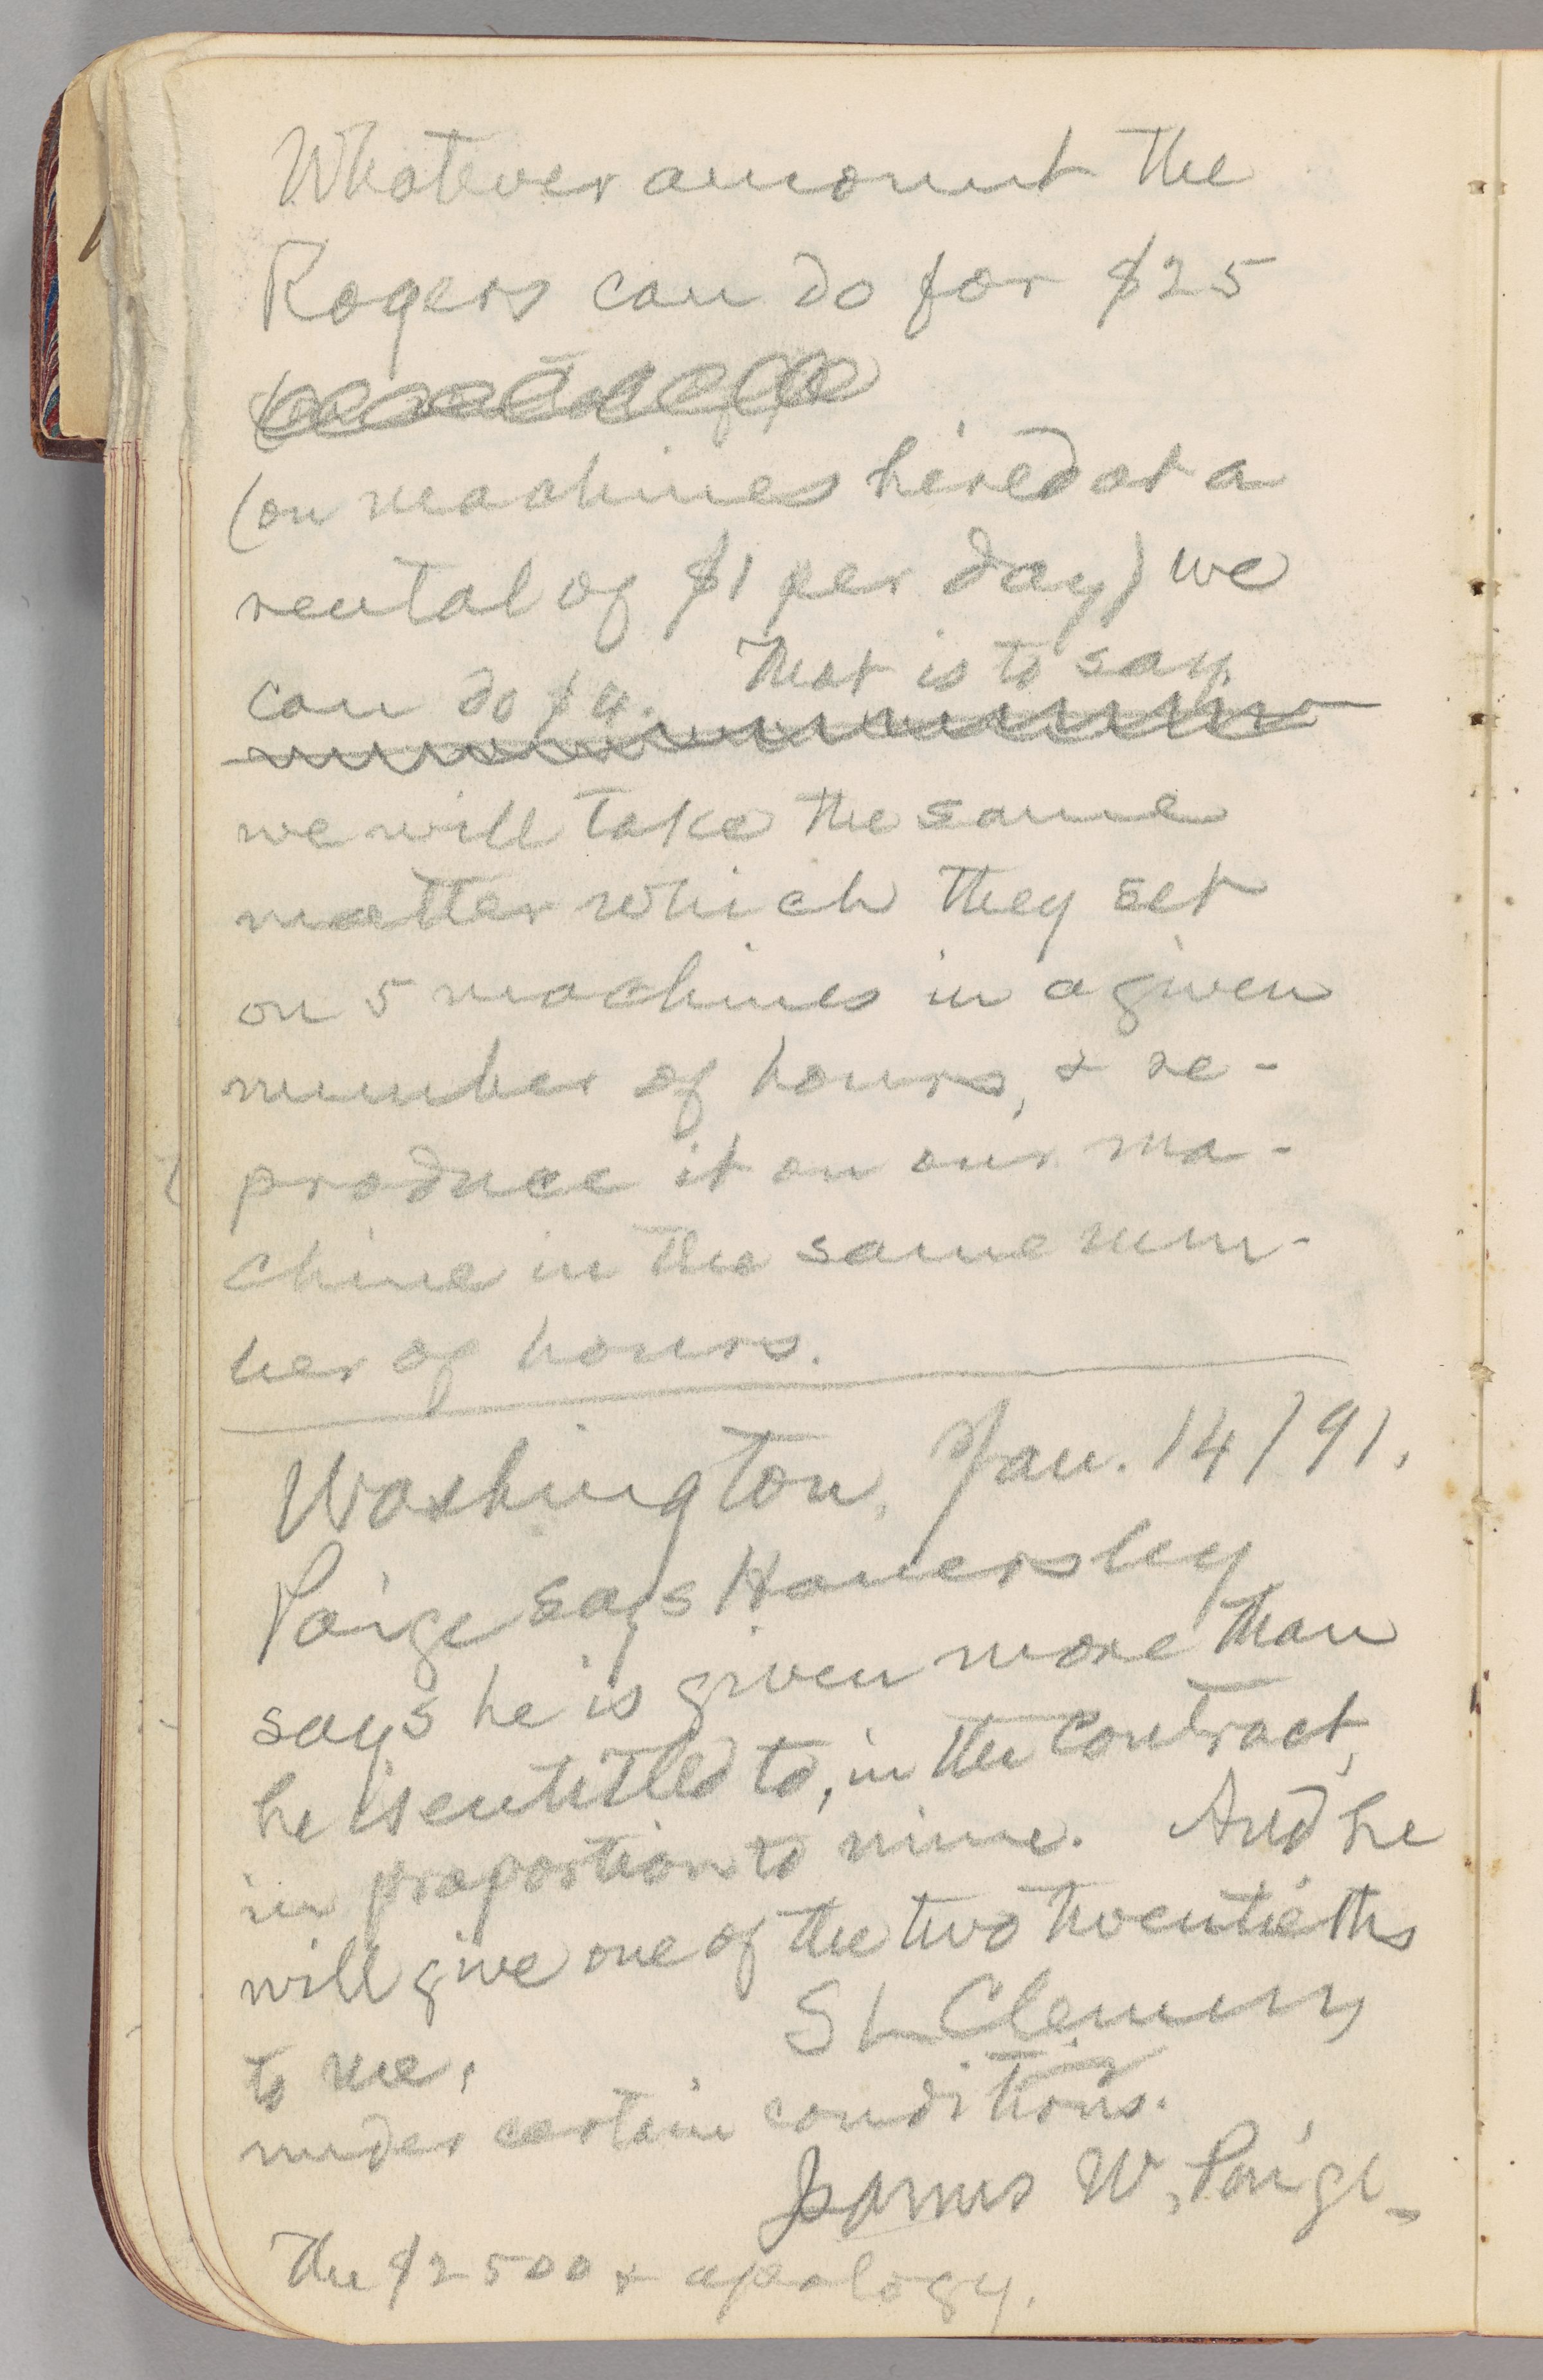 Whatever amount the
Rogers can do for $25
(on machines hired at a
rental of $1 per day) we
can do $4. That is to say,
we will take the same
matter which they set
on 5 machines in a given
number of hours, & re-
produce it on our ma-
chine in the same num-
ber of hours.
Washington, Jan. 14/91.
Paige says Hamersley
says he is given more than
he is entitled to, in the contract,
in proportion to mine. And he
will give one of the two twentieths
to me,
S L Clemens
under certain conditions.
James W. Paige
The $2500 & apology.